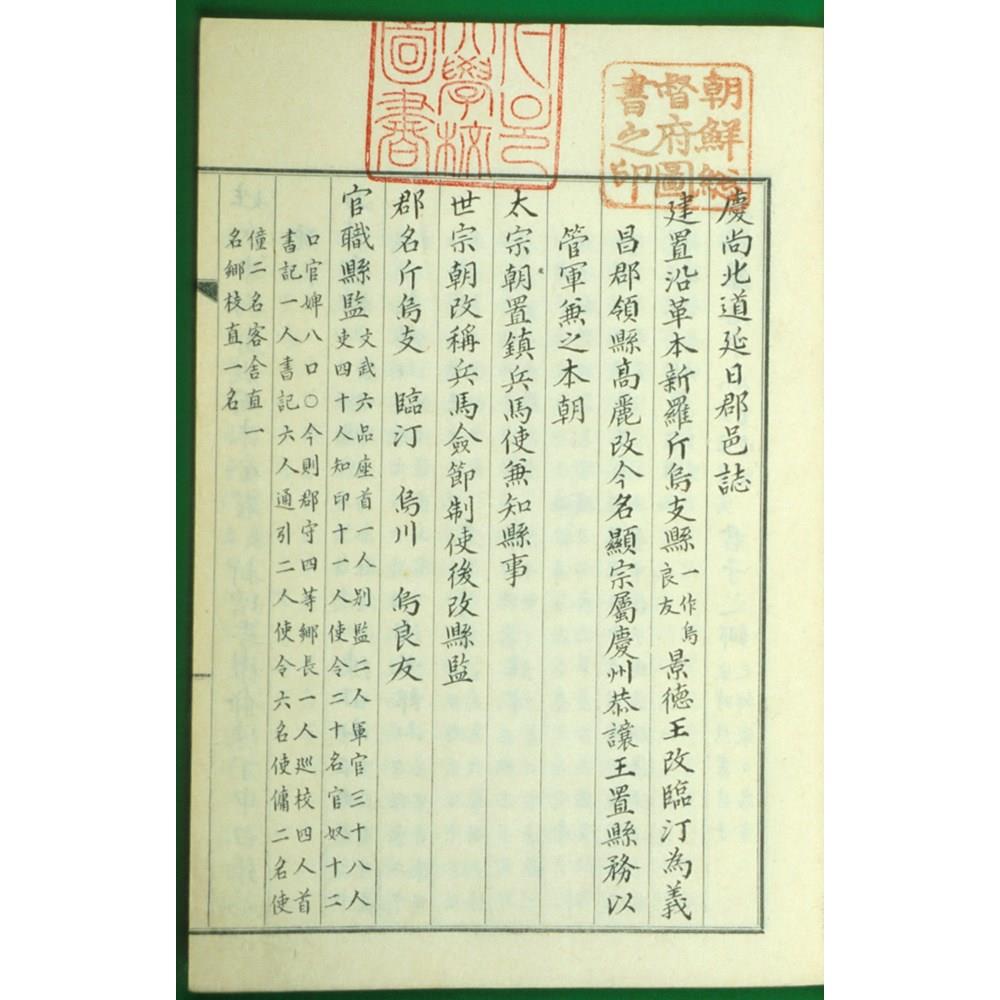 朝鮮総
督府圖
書之印
大學校
圖書
慶尚北道延日郡邑誌
建置沿革本新羅斤烏支縣一作烏良友景德王改臨汀為義
昌郡領縣高麗改今名顯宗屬慶州恭讓王置縣務以
管軍兼之本朝
太宗朝置鎮兵馬使兼知縣事
世宗朝改稱兵馬僉節制使後改縣監
郡名斤烏支 臨汀 烏川 烏良友
官職縣監文武六品座首一人別監二人軍官三十八人
吏四十人知印十一人使令二十名官奴十二
口官婢八口○今則郡守四等鄉長一人巡校四人首
書記一人書記六人通引二人使令六名使傭二名使
僮二名客舎直一
名鄉校直一名